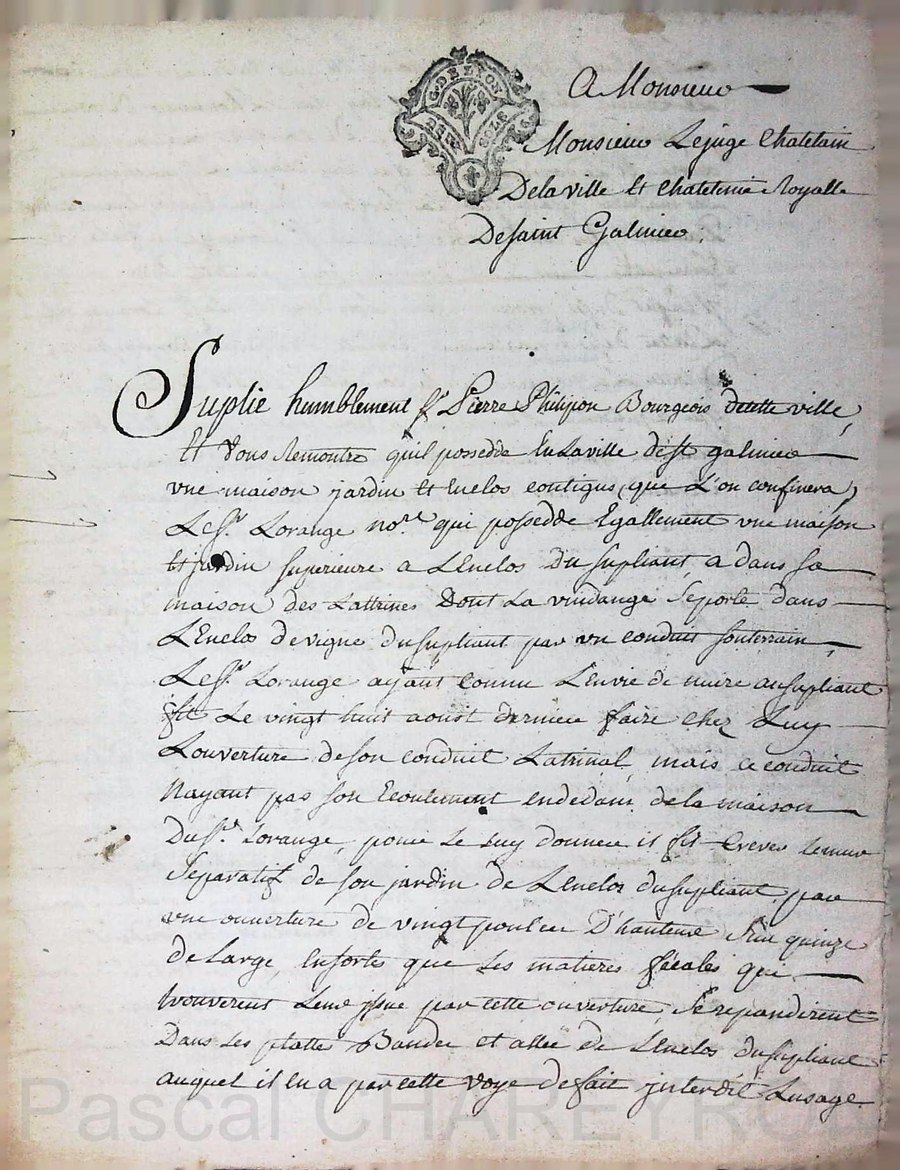 G. DE LYON
DEUX SOLS
A Monsieur
Monsieur Lejuge Chatelain
Delaville Et Chatelenie Royalle
Desaint Galmier.
Suplie humblement Sr. Pierre Philipon Bourgeois decette ville,
Et Vous Remontre quil possedde En Laville dest galmier
vne maison jardin Et Enclos contigus (que L'on confinera)
Le Sr. Lorange nore. qui possedde Egallement vne maison
Et jardin superieure a LEnclos Du supliant, a dans sa
maison des Lattrines Dont La vuidange Seporte dans
LEnclos devigne dusupliant par vn conduit souterrain,
Le Sr. Lorange ayant connu L'envie de nuire ausupliant
fit Le vingt huit aoust dernier faire chez Luy
Louverture de son conduit Latrinal, mais ce conduit
Nayant pas son Ecoulement endedans de la maison
Du Sr. Lorange, pour Le luy donner il fit Crever Lemur
Separatif de son jardin de LEnclos dusupliant, par
vne ouverture de vingt pouces D'hauteur Sur quinze
de Large, Ensortes que Les matieres fécales qui
trouverent Leur jssue par cette ouverture, Se repandirent
Dans Les platte Bandes et allée de LEnclos dusupliant
auquel il En a par cette voye defait jnterdit Lusage.
Pascal CHAREYRON